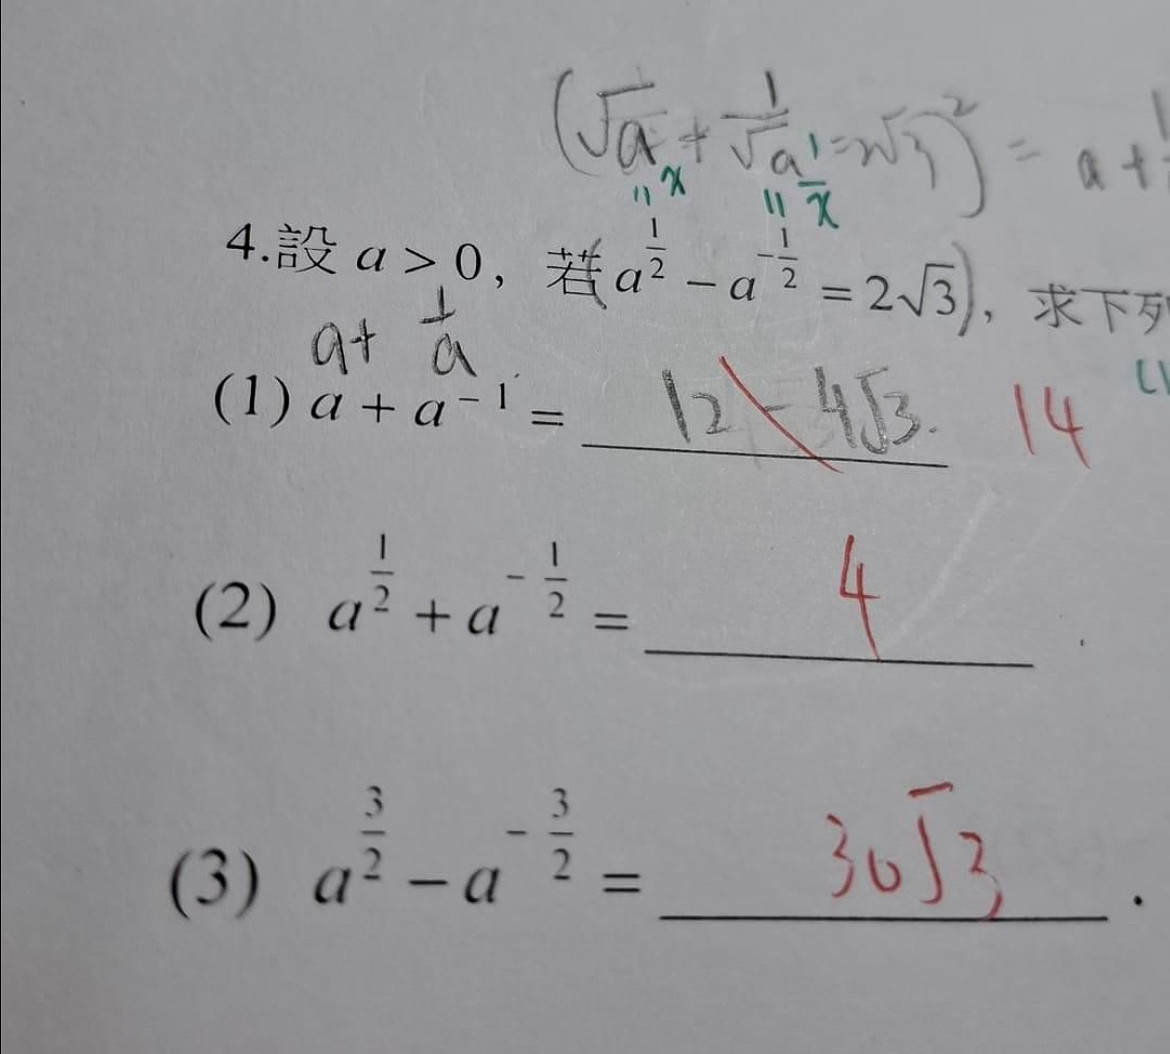 (√a + 1/√a = 2√3)² = a +
= x = 1/x
4.設 a > 0，若(a^{1/2} − a^{-1/2} = 2√3)，求下列
a + 1/a
(1) a + a^{-1} = 12 − 4√3. 14 (1
(2) a^{1/2} + a^{-1/2} = 4 .
(3) a^{3/2} − a^{-3/2} = 30√3 .